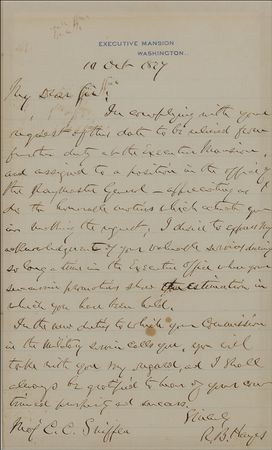 EXECUTIVE MANSION
WASHINGTON.
10 Oct 1877
My Dear Sir:
In complying with your
request of this date to be relieved from
further duty at the Executive Mansion
and assigned to a position in the office of
the Paymaster General — appreciating as I
do the honorable motives which actuate you
in making the request, I desire to express my
acknowledgment of your valuable services during
so long a time in the Executive Office where your
successive promotions show the estimation in
which you have been held.
In the new duties to which your Commission
in the Military service calls you, you will
take with you my regard, and I shall
always be gratified to hear of your con-
tinued prosperity and success.
Sincerely
R. B. Hayes
Maj C. C. Sniffen